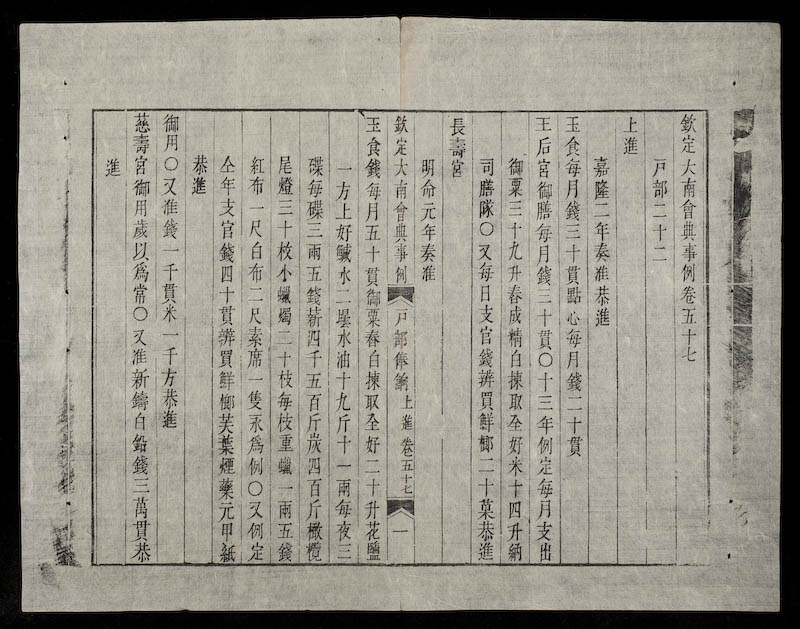 欽定大南會典事例卷五十七
戸部二十二
上進
嘉隆二年奏准恭進
玉食每月錢三十貫點心每月錢二十貫
王后宮御膳每月錢三十貫○十三年例定每月支出
御粟三十九升舂成精白揀取全好米十四升納
司膳隊○又每日支官錢辨買鮮榔二十菓恭進
長壽宮
明命元年奏准
欽定大南會典事例 戸部俸餉 上進 卷五十七 一
玉食錢每月五十貫御粟舂白揀取全好二十升花鹽
一方上好鹹水二壜水油十九斤十一兩每夜三
碟每碟三兩五錢薪四千五百斤炭四百斤橄欖
尾燈三十枚小蠟燭二十枝每枝重蠟一兩五錢
紅布一尺白布二尺素席一隻永爲例○又例定
全年支官錢四十貫辨買鮮榔芙葉煙藥元甲紙
恭進
御用○又准錢一千貫米一千方恭進
慈壽宮御用歲以爲常○又准新鑄白鉛錢三萬貫恭
進